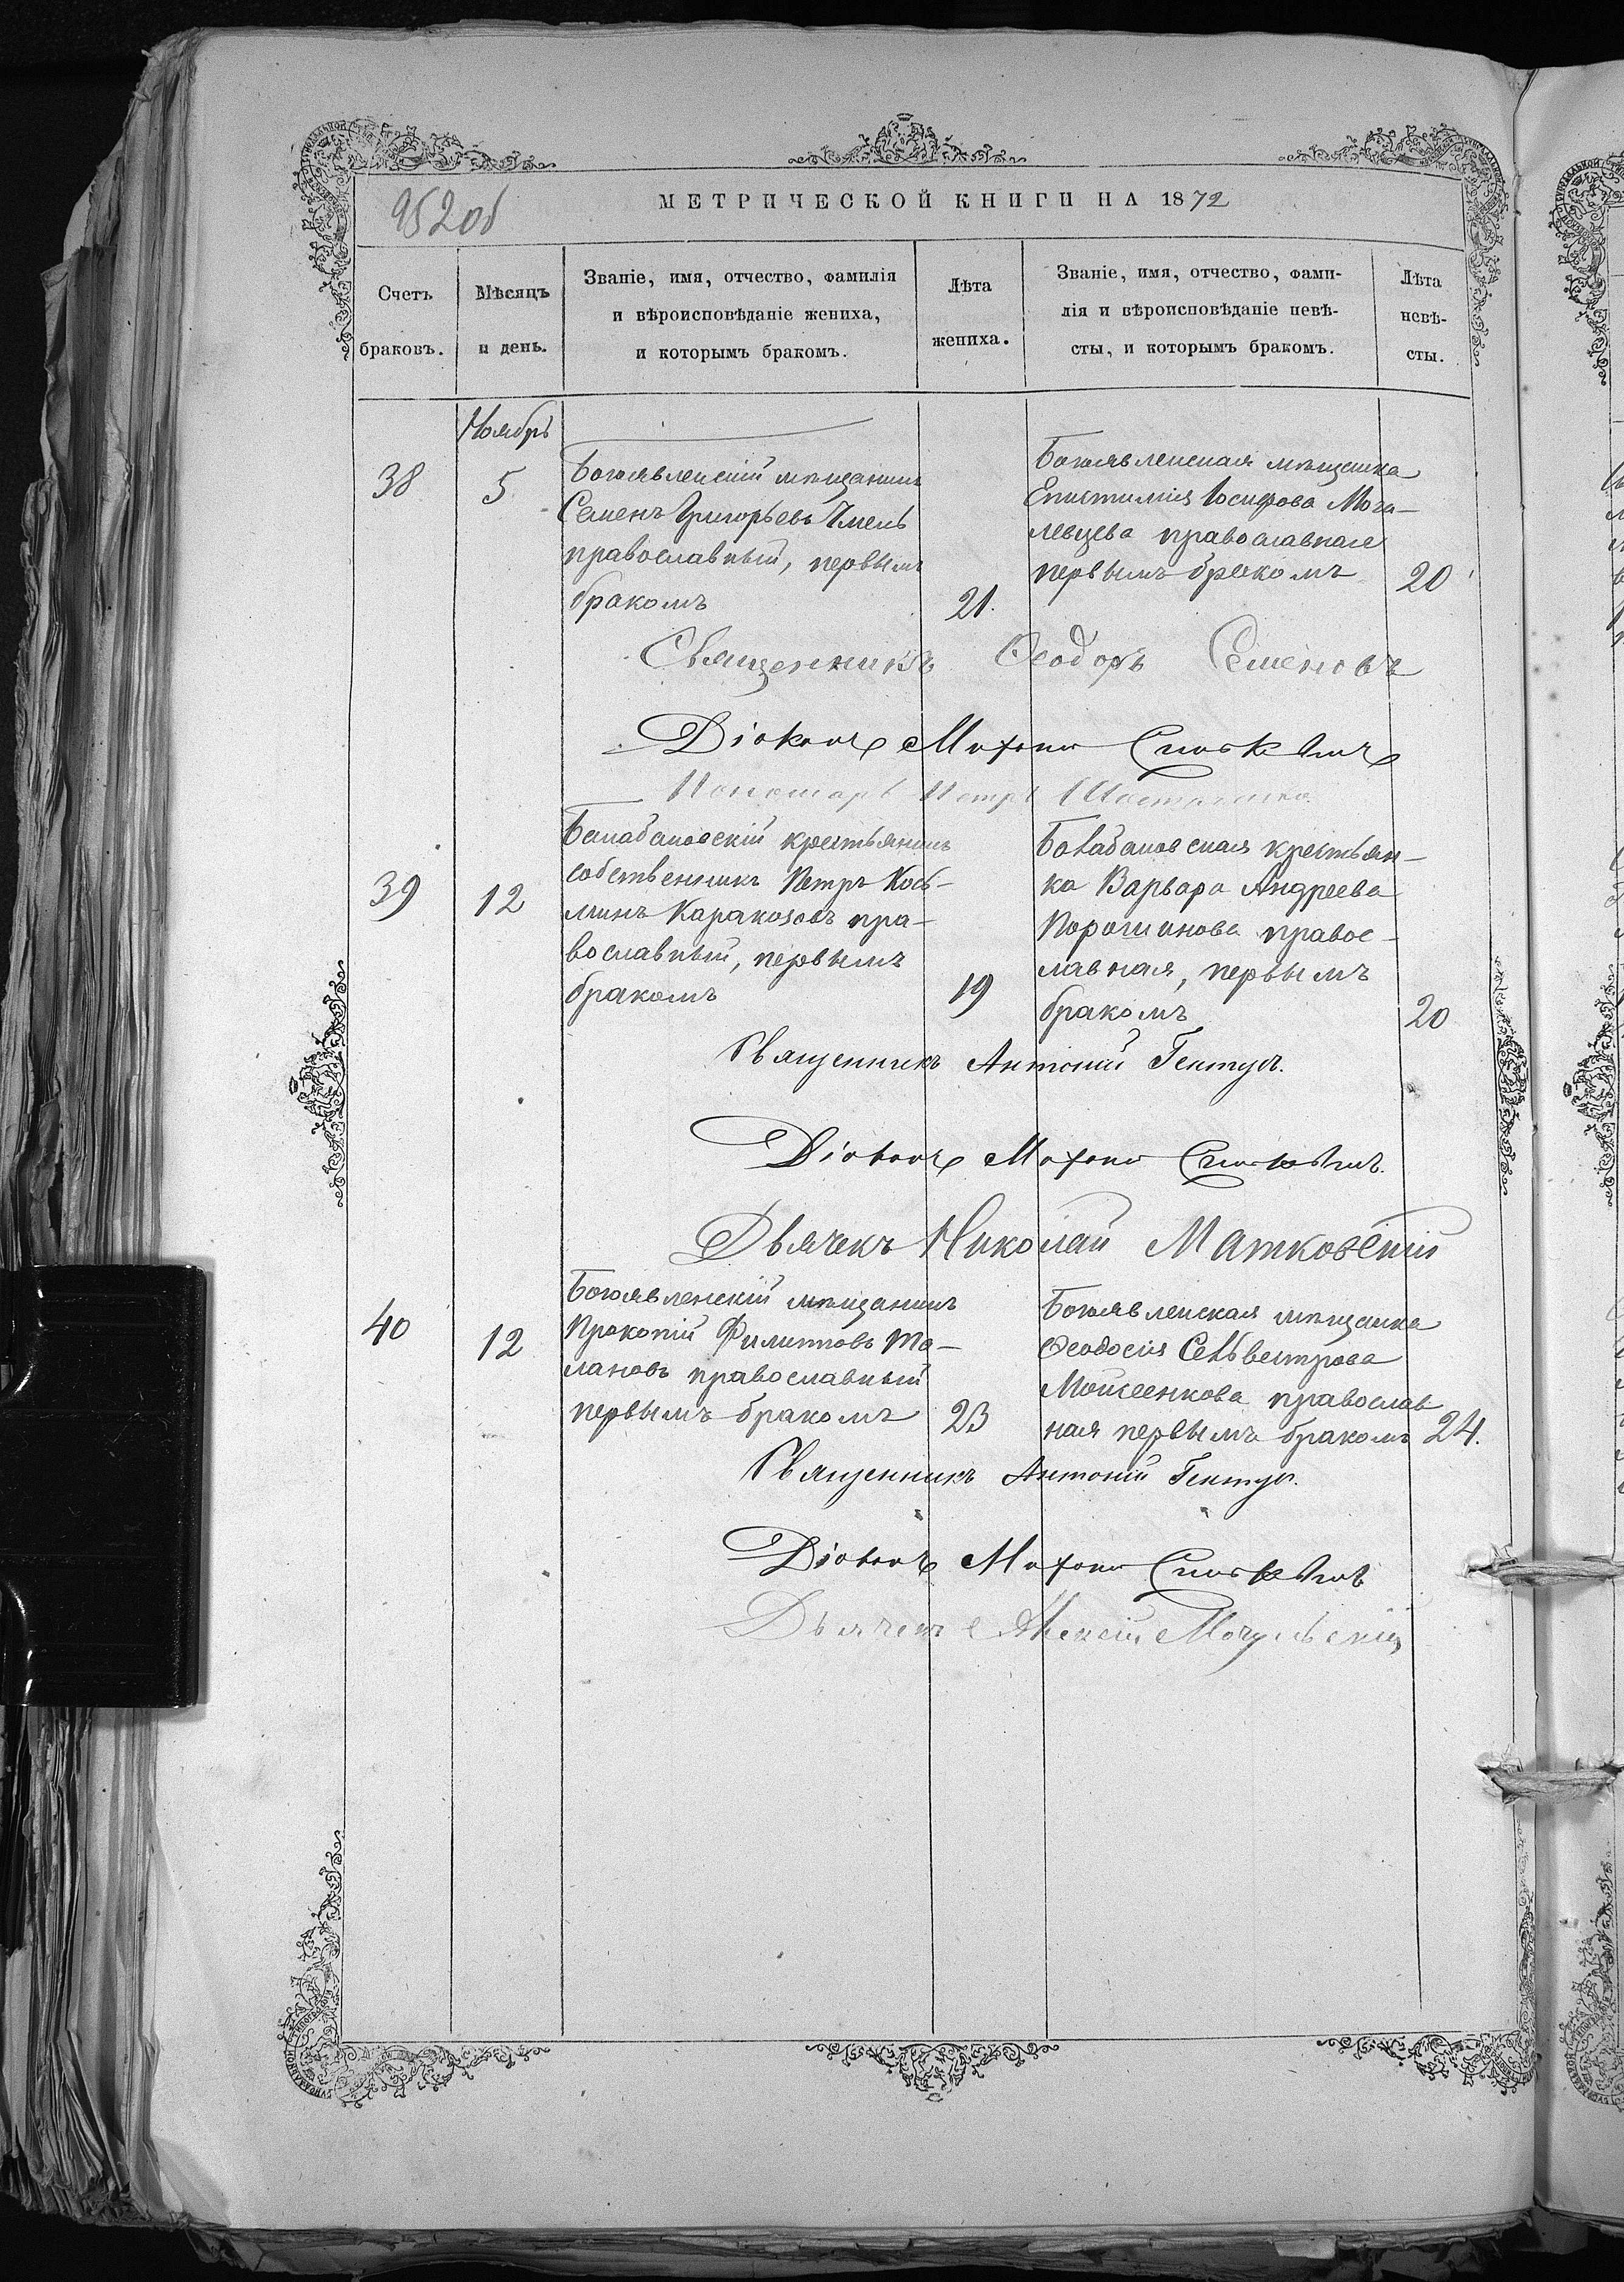 952об
МЕТРИЧЕСКОЙ КНИГИ НА 1872
Счетъ браковъ.
Мѣсяцъ и день.
Званіе, имя, отчество, фамилія
и вѣроисповѣданіе жениха,
и которымъ бракомъ.
Лѣта жениха.
Званіе, имя, отчество, фами-
лія и вѣроисповѣданіе невѣ-
сты, и которымъ бракомъ.
Лѣта невѣ-
сты.
Ноябрь
38
5
Богоявленскій мѣщанинъ
Семенъ Григорьевъ
православный, первымъ
бракомъ
21.
Богоявленская мѣщанка
Епистимія Іосифова Мога-
левцева православная
первымъ бракомъ
20
Священникъ Ѳеодоръ Семеновъ
Діаконъ
Пономарь Петръ
39
12
Балабановскій крестьянинъ
собственникъ Петръ Кось-
минъ Каракозовъ пра-
вославный, первымъ
бракомъ
19
Балабановская крестьян-
ка Варвара Андреева
Порошинова правос-
лавная, первымъ
бракомъ
20
Священникъ Антоній Гентуъ.
Діаконъ
Дьячекъ Николай Матковскій
40
12
Богоявленскій мѣщанинъ
Прокопій Филиповъ То-
лановъ православный
первымъ бракомъ
23
Богоявленская мѣщанка
Ѳеодосія Сельвестрова
Моисеенкова православ
ная первымъ бракомъ
24.
Священникъ Антоній
Діаконъ
Дьячекъ Алексій Могульскій